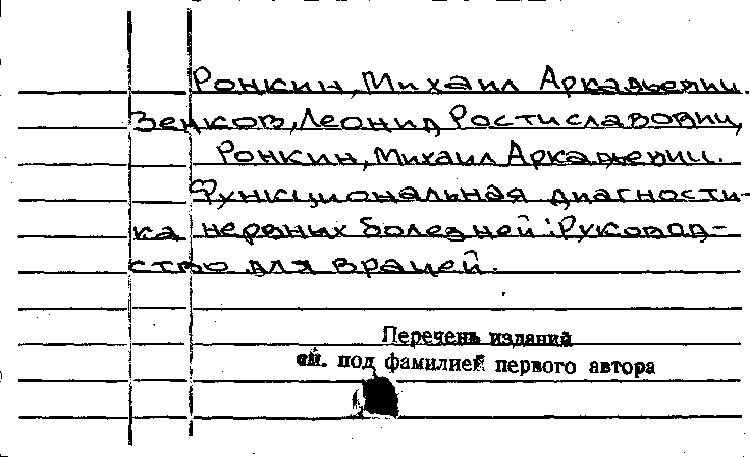 Ронкин, Михаил Аркадьевич.
Зенков, Леонид Ростиславович,
Ронкин, Михаил Аркадьевич.
Функциональная диагности-
ка нервных болезней: Руковод-
ство для врачей.
Перечень изданий
см. под фамилией первого автора